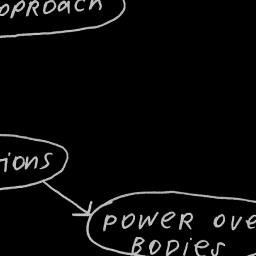 PPROACH
IONS
POWER OVE
BODIES